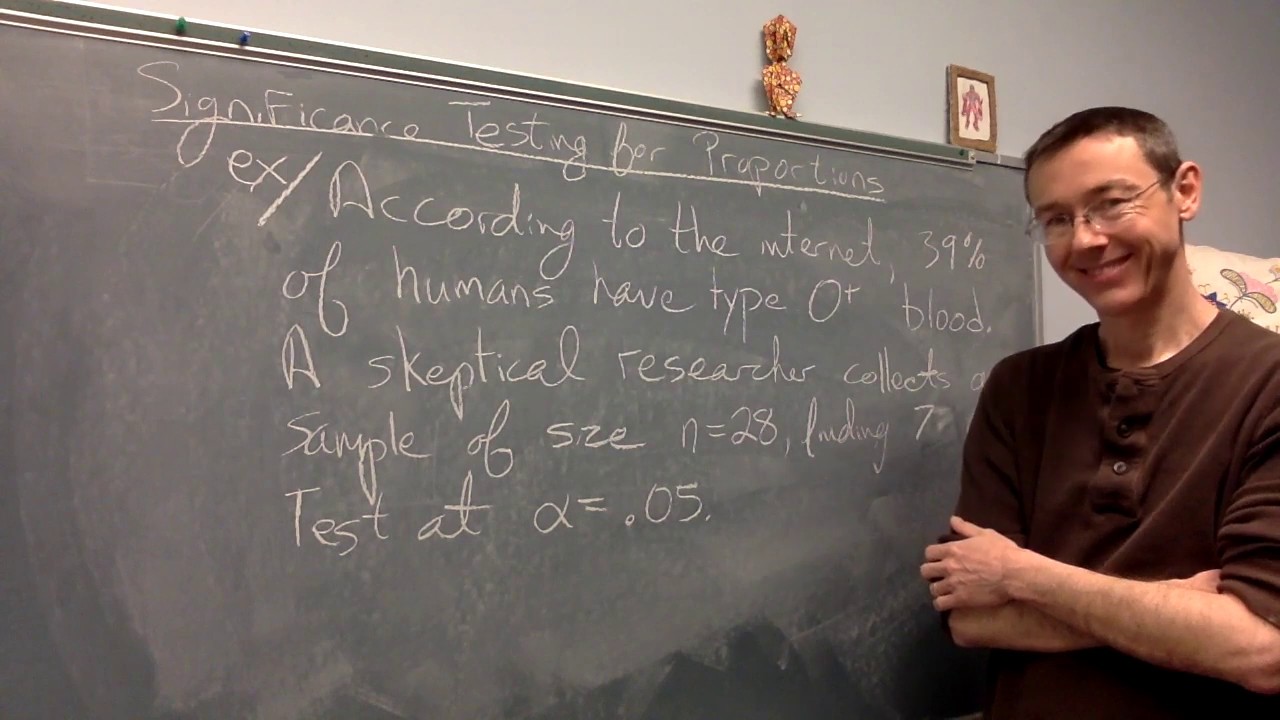 Significance Testing for Proportions
ex/ According to the internet, 39%
of humans have type O+ blood.
A skeptical researcher collects a
sample of size n=28, finding 7
Test at α=.05.